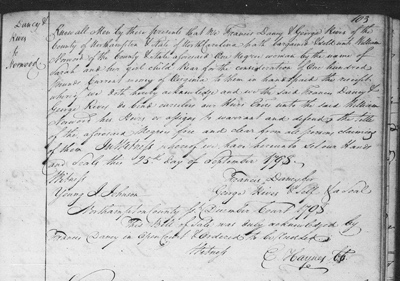 103
Dancy &
Rives
to
Norwood
Know all Men by these presents that We Francis Dancy & George Rives of the
County of Northampton & State of No Carolina hath bargained & Sold unto William
Norwood of the County & State aforesaid One Negro woman by the name of
Sarah and her first child for the consideration of One Hundred
Pounds Current money of Virginia to them in hand paid the receipt
whereof we doth hereby acknowledge and we the said Francis Dancy &
George Rives do bind ourselves our Heirs Exrs unto the said William
Norwood his Heirs or assigns to warrant and defend the title
of the aforesaid Negroes free and clear from all persons claiming
of them In Witness whereof we have hereunto Set our Hands
and Seals this 25th day of September 1795
Witness
Francis Dancy
Young J. Johnson
George Rives
Northampton County Sc December Court 1795
This Bill of Sale was duly acknowledged by
Francis Dancy in Open Court & Ordered to be Recorded
Witness
C Haynes Ck